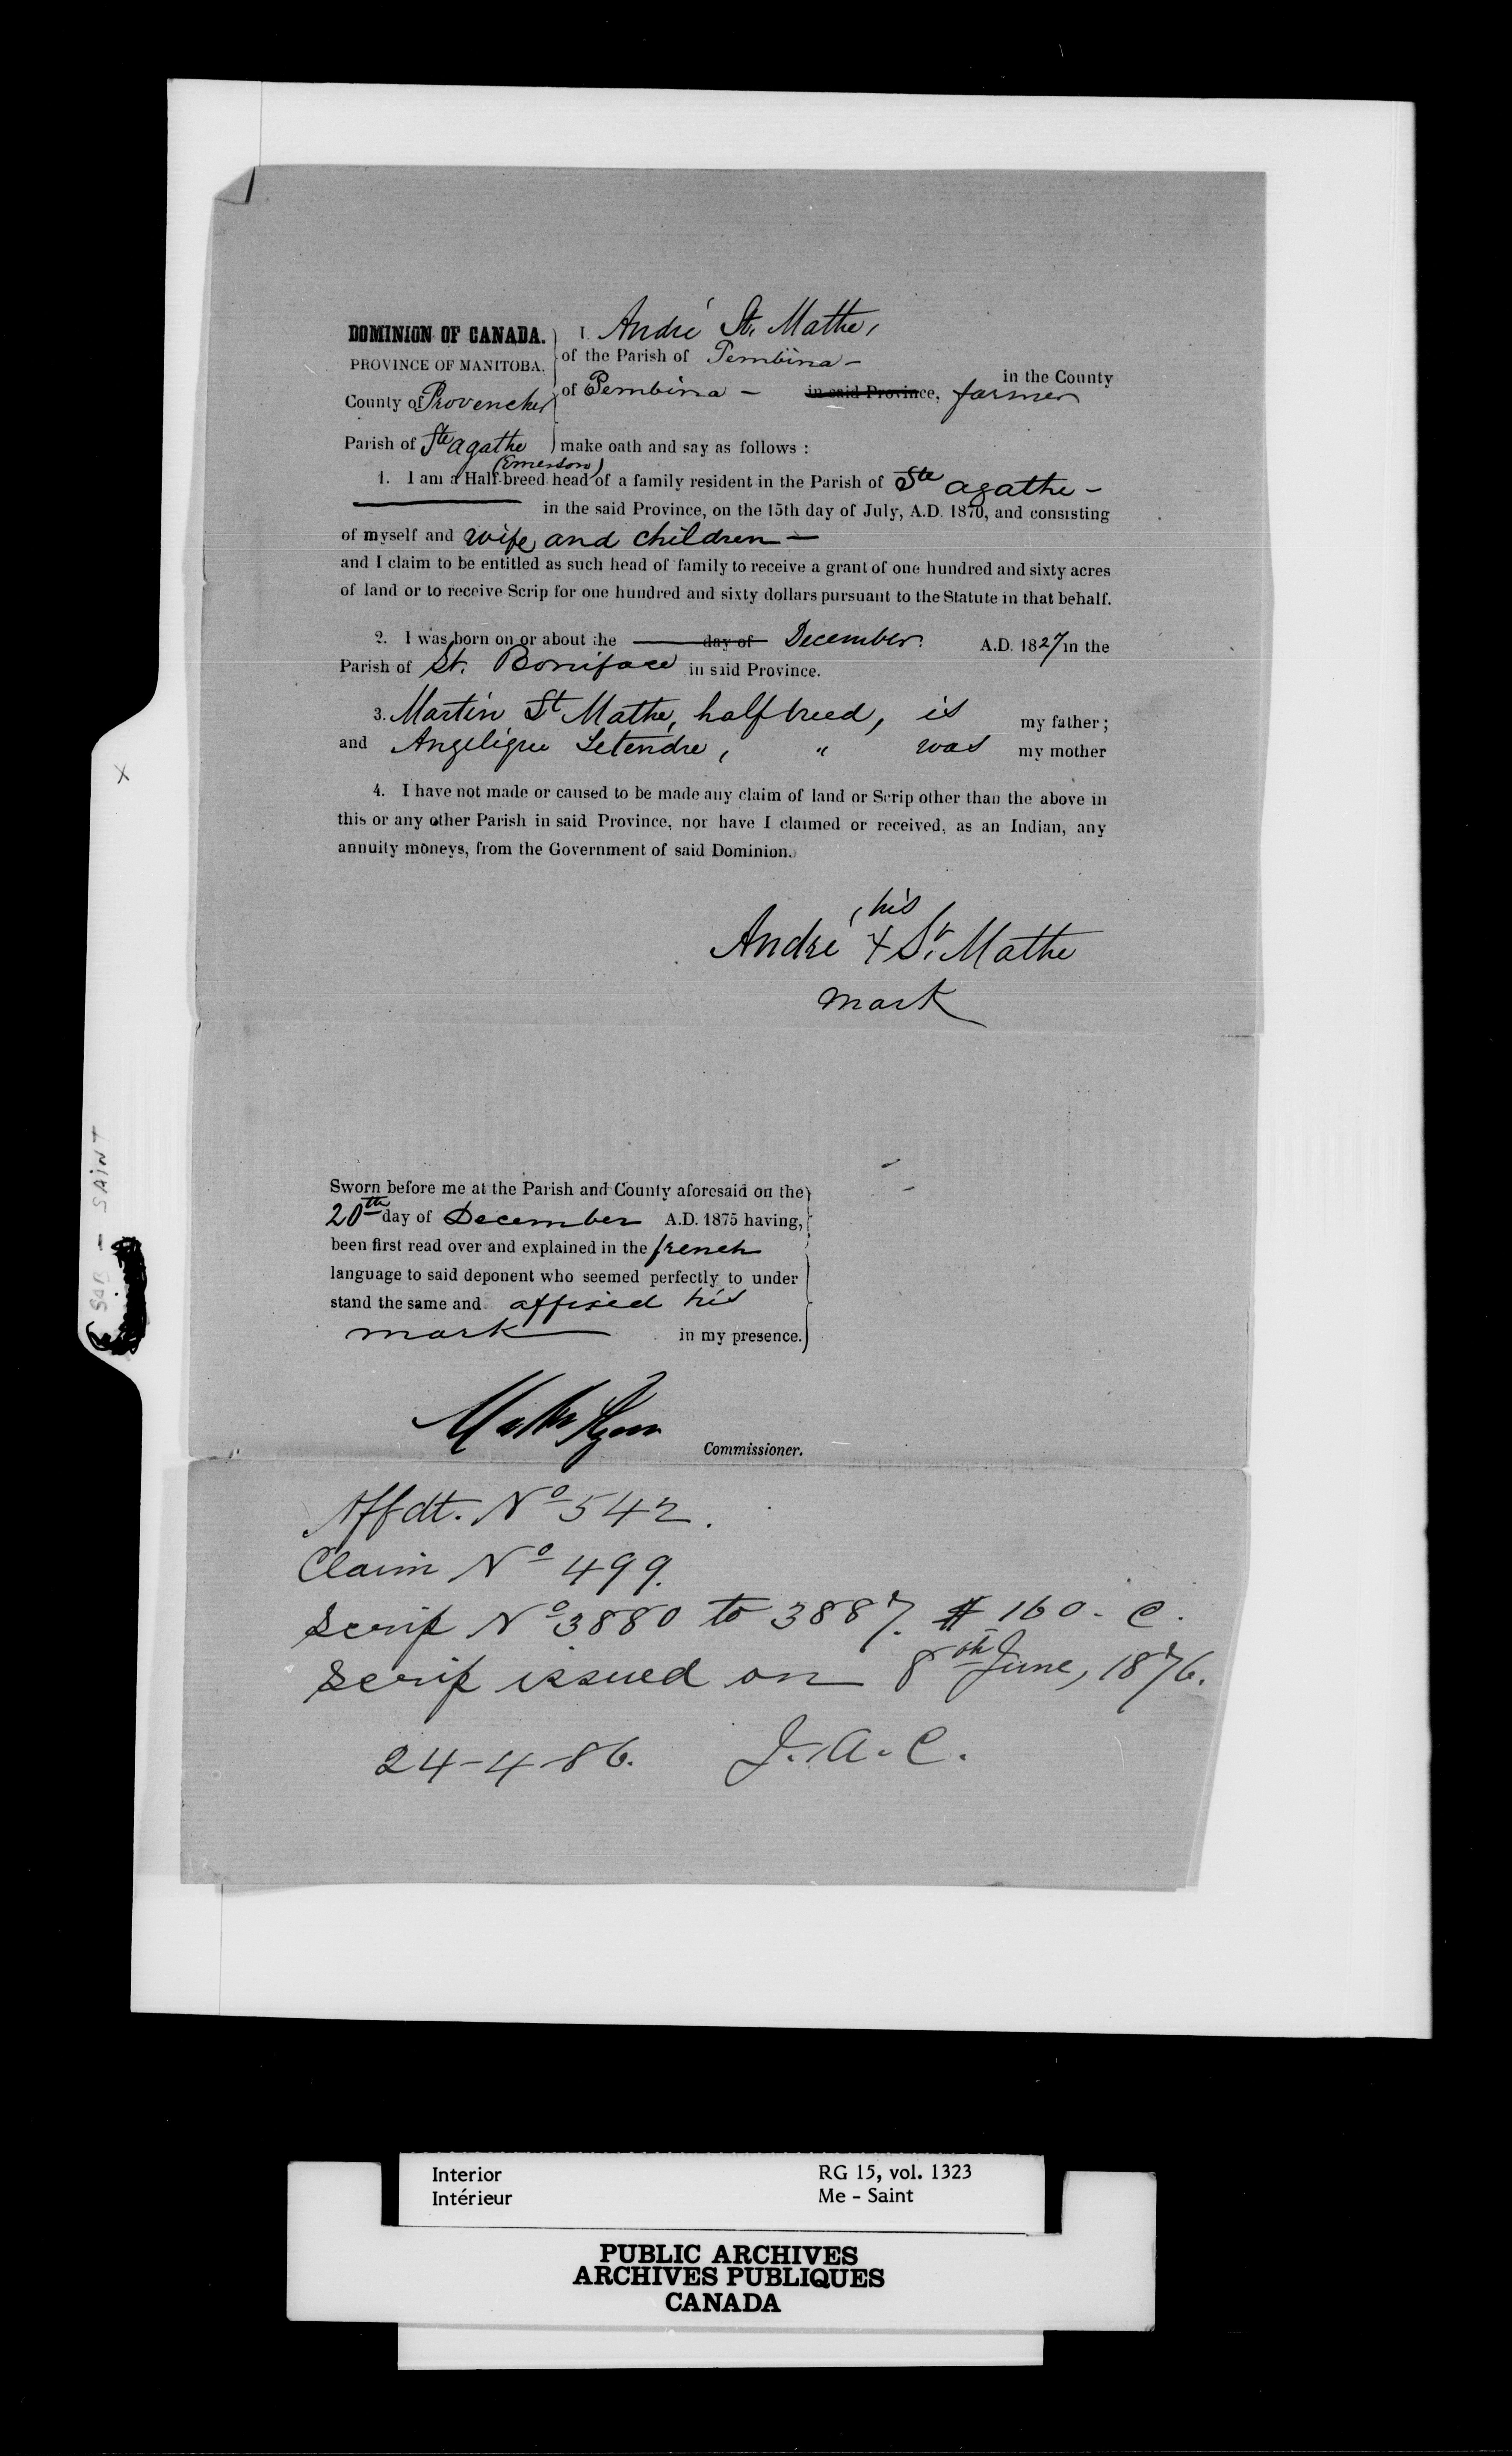 DOMINION OF CANADA.
PROVINCE OF MANITOBA.
County of Provencher
Parish of Ste Agathe
(Emerson)
I, André St. Mathe,
of the Parish of Pembina –
in the County
of Pembina – in said Province, farmer
make oath and say as follows :
1. I am a Half-breed head of a family resident in the Parish of Ste Agathe –
in the said Province, on the 15th day of July, A.D. 1870, and consisting
of myself and wife and children –
and I claim to be entitled as such head of family to receive a grant of one hundred and sixty acres
of land or to receive Scrip for one hundred and sixty dollars pursuant to the Statute in that behalf.
2. I was born on or about the day of December A.D. 1827 in the
Parish of St. Boniface in said Province.
3. Martin St Mathe, halfbreed, is my father ;
and Angelique Letendre, " was my mother
4. I have not made or caused to be made any claim of land or Scrip other than the above in
this or any other Parish in said Province, nor have I claimed or received, as an Indian, any
annuity moneys, from the Government of said Dominion.
his
André X St. Mathe
mark
Sworn before me at the Parish and County aforesaid on the
20th day of December A.D. 1875 having,
been first read over and explained in the french
language to said deponent who seemed perfectly to under
stand the same and affixed his
mark in my presence.
Commissioner.
Affdt. No 542.
Claim No 499.
Scrip No 3880 to 3887. $160. C.
Scrip issued on 8th June, 1876.
24-4-86. J. A. C.
X
SAB - SAINT
Interior
Intérieur
RG 15, vol. 1323
Me - Saint
PUBLIC ARCHIVES
ARCHIVES PUBLIQUES
CANADA